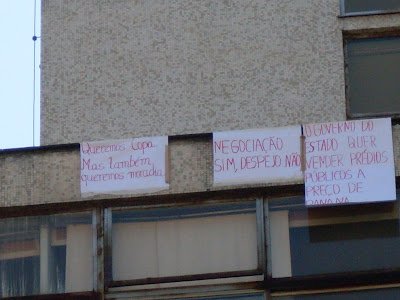 Queremos Copa.
Mas também,
queremos moradia.
NEGOCIAÇÃO
SIM, DESPEJO NÃO
O GOVERNO DO
ESTADO QUER
VENDER PRÉDIOS
PÚBLICOS A
PREÇO DE
BANANA